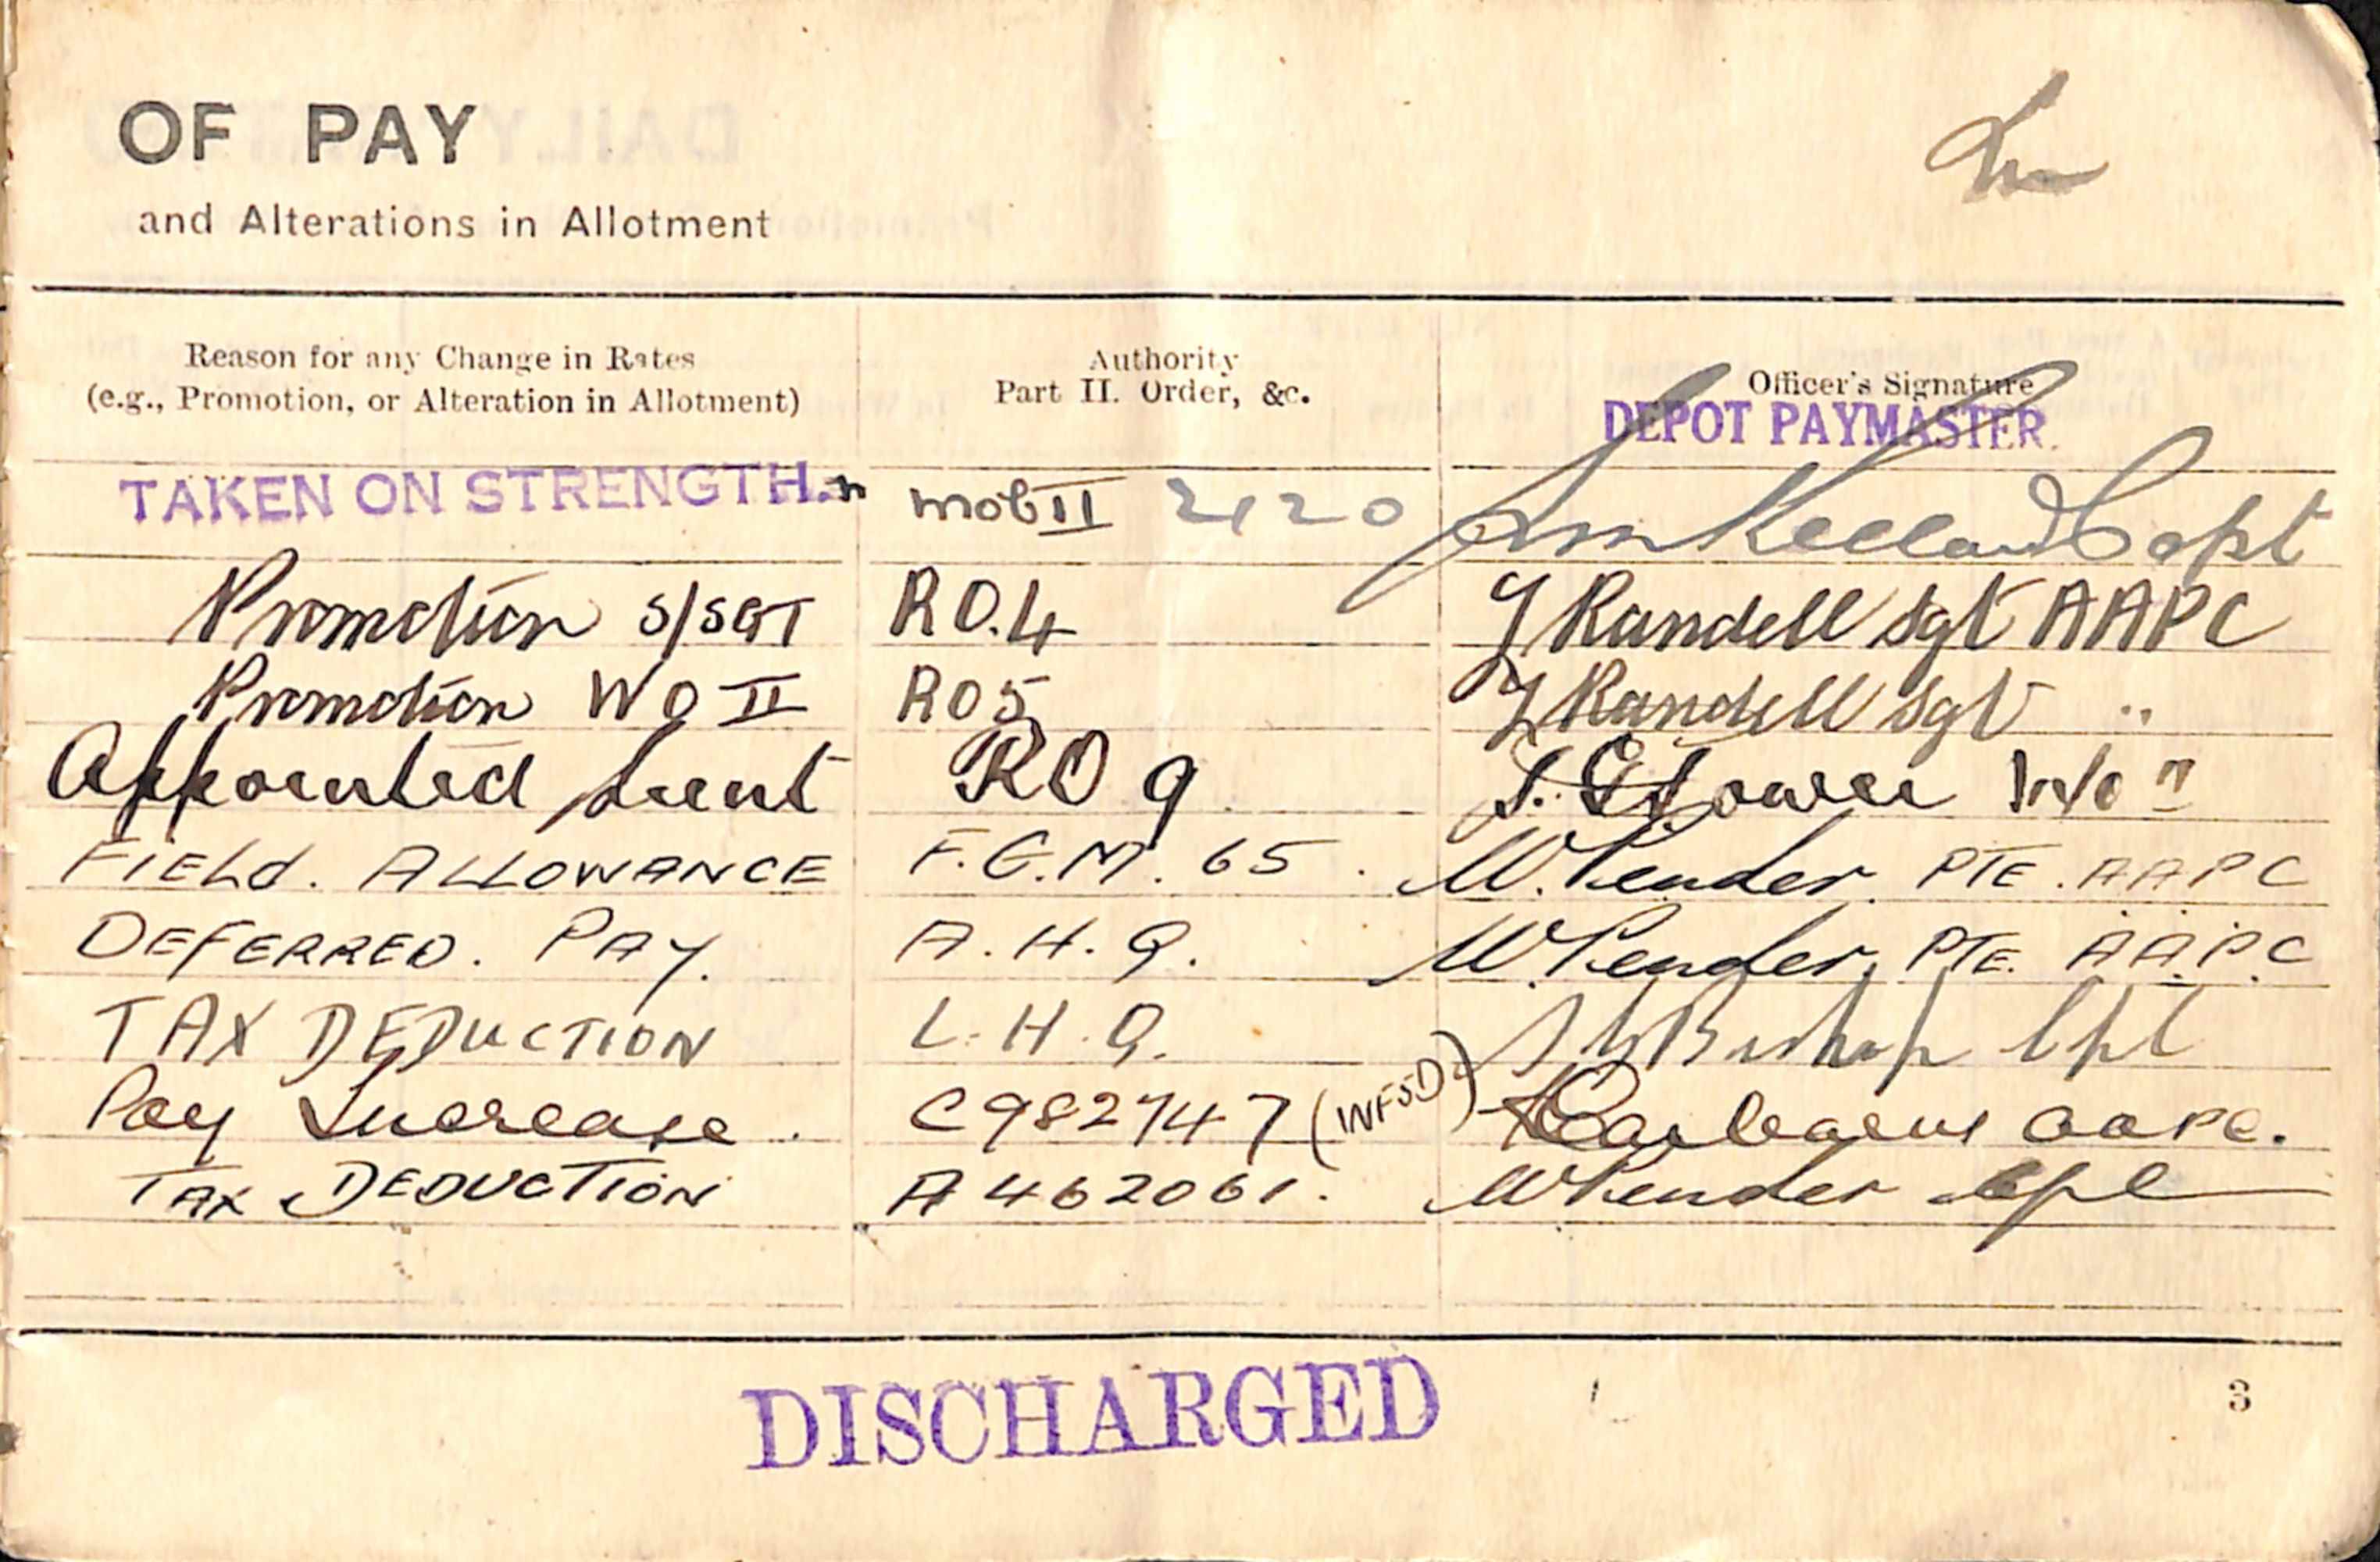 OF PAY
and Alterations in Allotment
Reason for any Change in Rates
(e.g., Promotion, or Alteration in Allotment)
Authority
Part II. Order, &c.
Officer's Signature
DEPOT PAYMASTER.
TAKEN ON STRENGTH. mob II 2120 Capt
Promotion S/SGT RO.4 Randell Sgt AAPC
Promotion WO II RO5 Randell Sgt "
Appointed Lieut RO 9 W/O II
FIELD. ALLOWANCE F.G.M. 65. W. Pender. PTE. AAPC
DEFERRED. PAY. A.H.Q. W Pender, PTE. A.A.P.C
TAX DEDUCTION L.H.Q. Bishop Cpl
Pay Increase. C982747 (INFSD) AAPC.
TAX DEDUCTION A462061. W Pender Cpl
DISCHARGED
3